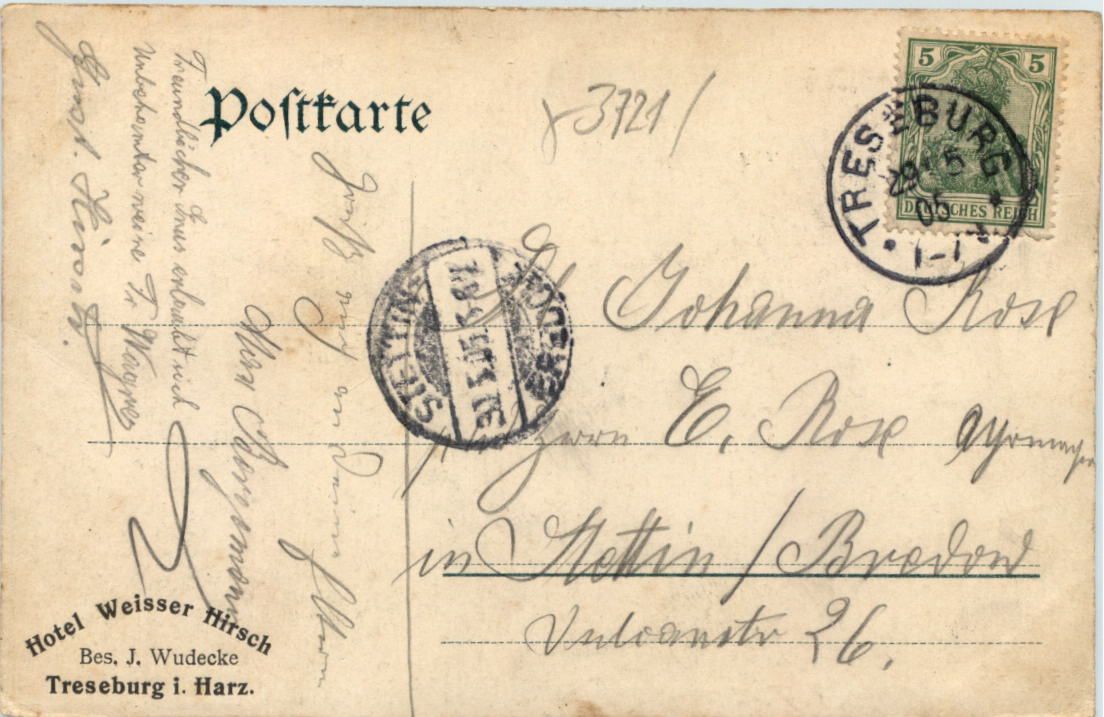 Postkarte
3721
5 5
DEUTSCHES REICH
TRESEBURG
29 5
05
1-17
STETTIN
30.5.05.
BREDOW
Johanna Rose
Herrn E. Rose
in Stettin / Bredow
Vulcanstr 26.
Gruß auch an Deine Eltern
Max Borgmann
Freundlichen Grus erlaubt sich
Unbekannterweise Fr. Wagner
Gust. Hirsch.
Hotel Weisser Hirsch
Bes. J. Wudecke
Treseburg i. Harz.